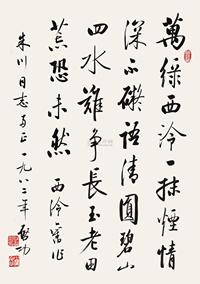 萬綠西泠一抹煙情
深不礙語清圓碧山
四水難爭長玉老田
荒恐未然 西泠舊作
朱川同志正 一九八二年 啟功